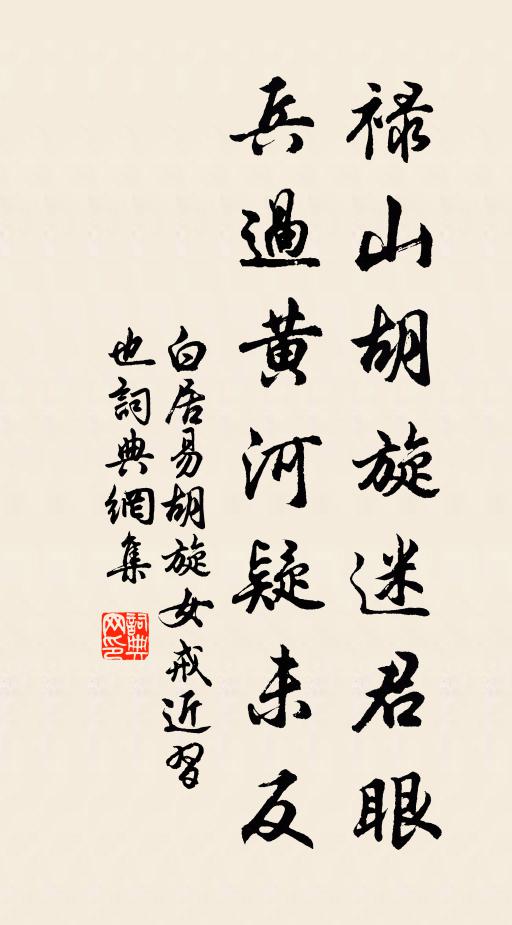 禄山胡旋迷君眼
兵過黄河疑未反
白居易胡旋女戒近習
也詞典網集
詞典
网印